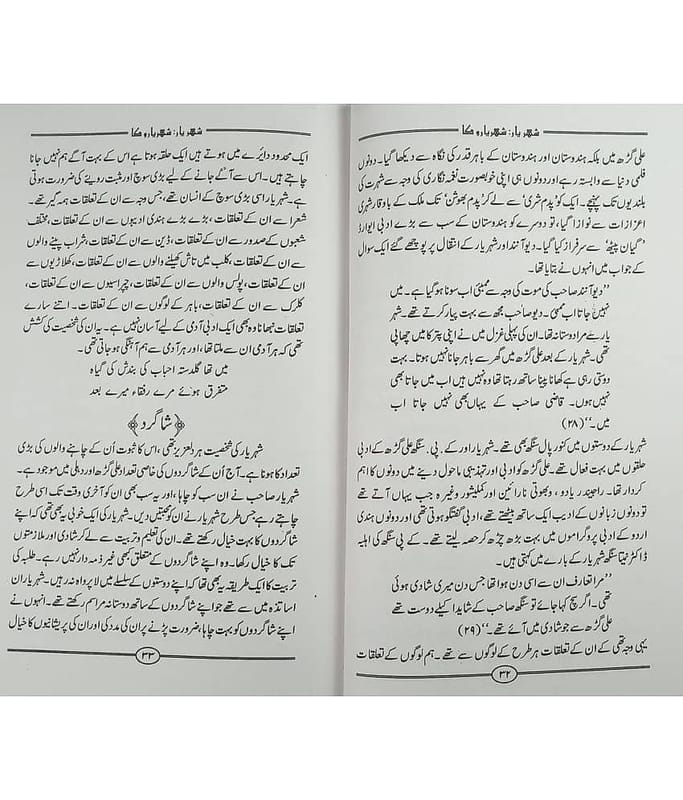 شہریار: شہریارو کا
علی گڑھ میں بلکہ ہندوستان اور ہندوستان کے باہر قدر کی نگاہ سے دیکھا گیا۔ دونوں
فلمی دنیا سے وابستہ رہے اور دونوں ہی اپنی خوبصورت نغمہ نگاری کی وجہ سے شہرت کی
بلندیوں تک پہنچے۔ ایک کو ’پدم شری‘ سے لے کر ’پدم بھوشن‘ تک ملک کے باوقار شہری
اعزازات سے نوازا گیا، تو دوسرے کو ہندوستان کے سب سے بڑے ادبی ایوارڈ
’گیان پیٹھ‘ سے سرفراز کیا گیا۔ دیوآنند اور شہریار کے انتقال پر پوچھے گئے ایک سوال
کے جواب میں انہوں نے بتایا تھا۔
’’دیوآنند صاحب کی موت کی وجہ سے ممبئی اب سونا ہوگیا ہے۔ میں
نہیں جاتا اب ممبئی۔ دیو صاحب مجھ سے بہت پیار کرتے تھے۔ شہر
یار سے مرا دوستانہ تھا۔ ان کی پہلی غزل میں نے اپنی پترکا میں چھاپی
تھی۔ شہریار کے بعد علی گڑھ میں گھر سے باہر جانا نہیں ہوتا۔ بہت
دوستی رہی ہے کھانا پینا ساتھ رہتا تھا وہ نہیں ہیں اب میں جاتا بھی
نہیں ہوں۔ قاضی صاحب کے یہاں بھی نہیں جاتا اب
میں۔‘‘ (۲۸)
شہریار کے دوستوں میں کنور پال سنگھ بھی تھے۔ شہریار اور کے۔ پی۔ سنگھ علی گڑھ کے ادبی
حلقوں میں بہت فعال تھے۔ علی گڑھ کو ادبی اور تہذیبی ماحول دینے میں دونوں کا اہم
کردار تھا۔ راجیندر یادو، وبھوتی نارائین اور کملیشور وغیرہ جب یہاں آتے تھے
تو دونوں زبانوں کے ادیب ایک ساتھ بیٹھتے تھے، ادبی گفتگو ہوتی تھی اور دونوں ہندی
اردو کے ادبی پروگراموں میں بہت بڑھ چڑھ کر حصہ لیتے تھے۔ کے پی سنگھ کی اہلیہ
ڈاکٹر نیتا سنگھ شہریار کے بارے میں کہتی ہیں۔
’’مرا تعارف ان سے اسی دن ہوا تھا جس دن میری شادی ہوئی
تھی۔ اگر سچ کہا جائے تو سنگھ صاحب کے شاید اکیلے دوست تھے
علی گڑھ سے جو شادی میں آئے تھے۔‘‘ (۲۹)
یہی وجہ تھی کے ان کے تعلقات ہر طرح کے لوگوں سے تھے۔ ہم لوگوں کے تعلقات
۳۲
شہریار: شہریارو کا
ایک محدود دائرے میں ہوتے ہیں ایک حلقہ ہوتا ہے اس کے بہت آگے ہم نہیں جانا
چاہتے ہیں۔ اس سے آگے جانے کے لیے بڑی سوچ اور مثبت رویئے کی ضرورت ہوتی
ہے۔ شہریار اسی بڑی سوچ کے انسان تھے، جس وجہ سے ان کے تعلقات ہمہ گیر تھے۔
شعرا سے ان کے تعلقات، بڑے بڑے ہندی ادیبوں سے ان کے تعلقات، مختلف
شعبوں کے صدور سے ان کے تعلقات، ڈین سے ان کے تعلقات، شراب پینے والوں
سے ان کے تعلقات، کلب میں تاش کھیلنے والوں سے ان کے تعلقات، کھلاڑیوں سے
ان کے تعلقات، پولس والوں سے ان کے تعلقات، چپراسیوں سے ان کے تعلقات،
کلرک سے ان کے تعلقات، باہر کے لوگوں سے ان کے تعلقات۔ اتنے سارے
تعلقات نبھانا وہ بھی ایک ادبی آدمی کے لیے آسان نہیں ہے۔ یہ ان کی شخصیت کی کشش
تھی کہ ہر آدمی ان سے ملتا تھا، اور ہر آدمی سے ہم آہنگی ہو جاتی تھی۔
میں تھا گلدستہ احباب کی بندش کی گیاہ
متفرق ہوئے مرے رفقاء میرے بعد
﴿شاگرد﴾
شہریار کی شخصیت ہر دلعزیز تھی، اس کا ثبوت اُن کے چاہنے والوں کی بڑی
تعداد کا ہونا ہے۔ آج اُن کے شاگردوں کی خاصی تعداد علی گڑھ اور دہلی میں موجود ہے۔
شہریار صاحب نے ان سب کو چاہا، اور یہ سب بھی ان کو آخری وقت تک اسی طرح
چاہتے رہے جس طرح شہریار نے ان کو محبتیں دیں۔ شہریار کی ایک خوبی یہ بھی تھی کہ اپنے
شاگردوں کا بہت خیال رکھتے تھے۔ ان کی تعلیم و تربیت سے لے کر شادی اور ملازمتوں
تک کا خیال رکھا۔ وہ اپنے شاگردوں کے متعلق کبھی غیر ذمہ دار نہیں رہے۔ طلبہ کی
تربیت کا ایک طریقہ یہ بھی تھا کہ اپنے دوستوں کے سلسلے میں لا پرواہ نہ رہیں۔ شہریار ان
اساتذہ میں سے تھے جو اپنے شاگردوں کے ساتھ دوستانہ مراسم رکھتے تھے۔ انہوں نے
اپنے شاگردوں کو بہت چاہا، ضرورت پڑنے پر ان کی مدد کی اور ان کی پریشانیوں کا خیال
۳۳